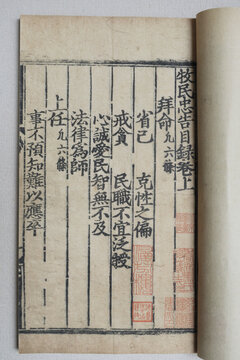 牧民忠告目錄卷上
拜命九六篇
省己　克性之偏
戒貪　民職不宜泛授
心誠愛民智無不及
法律爲師
上任九六篇
事不預知難以應卒